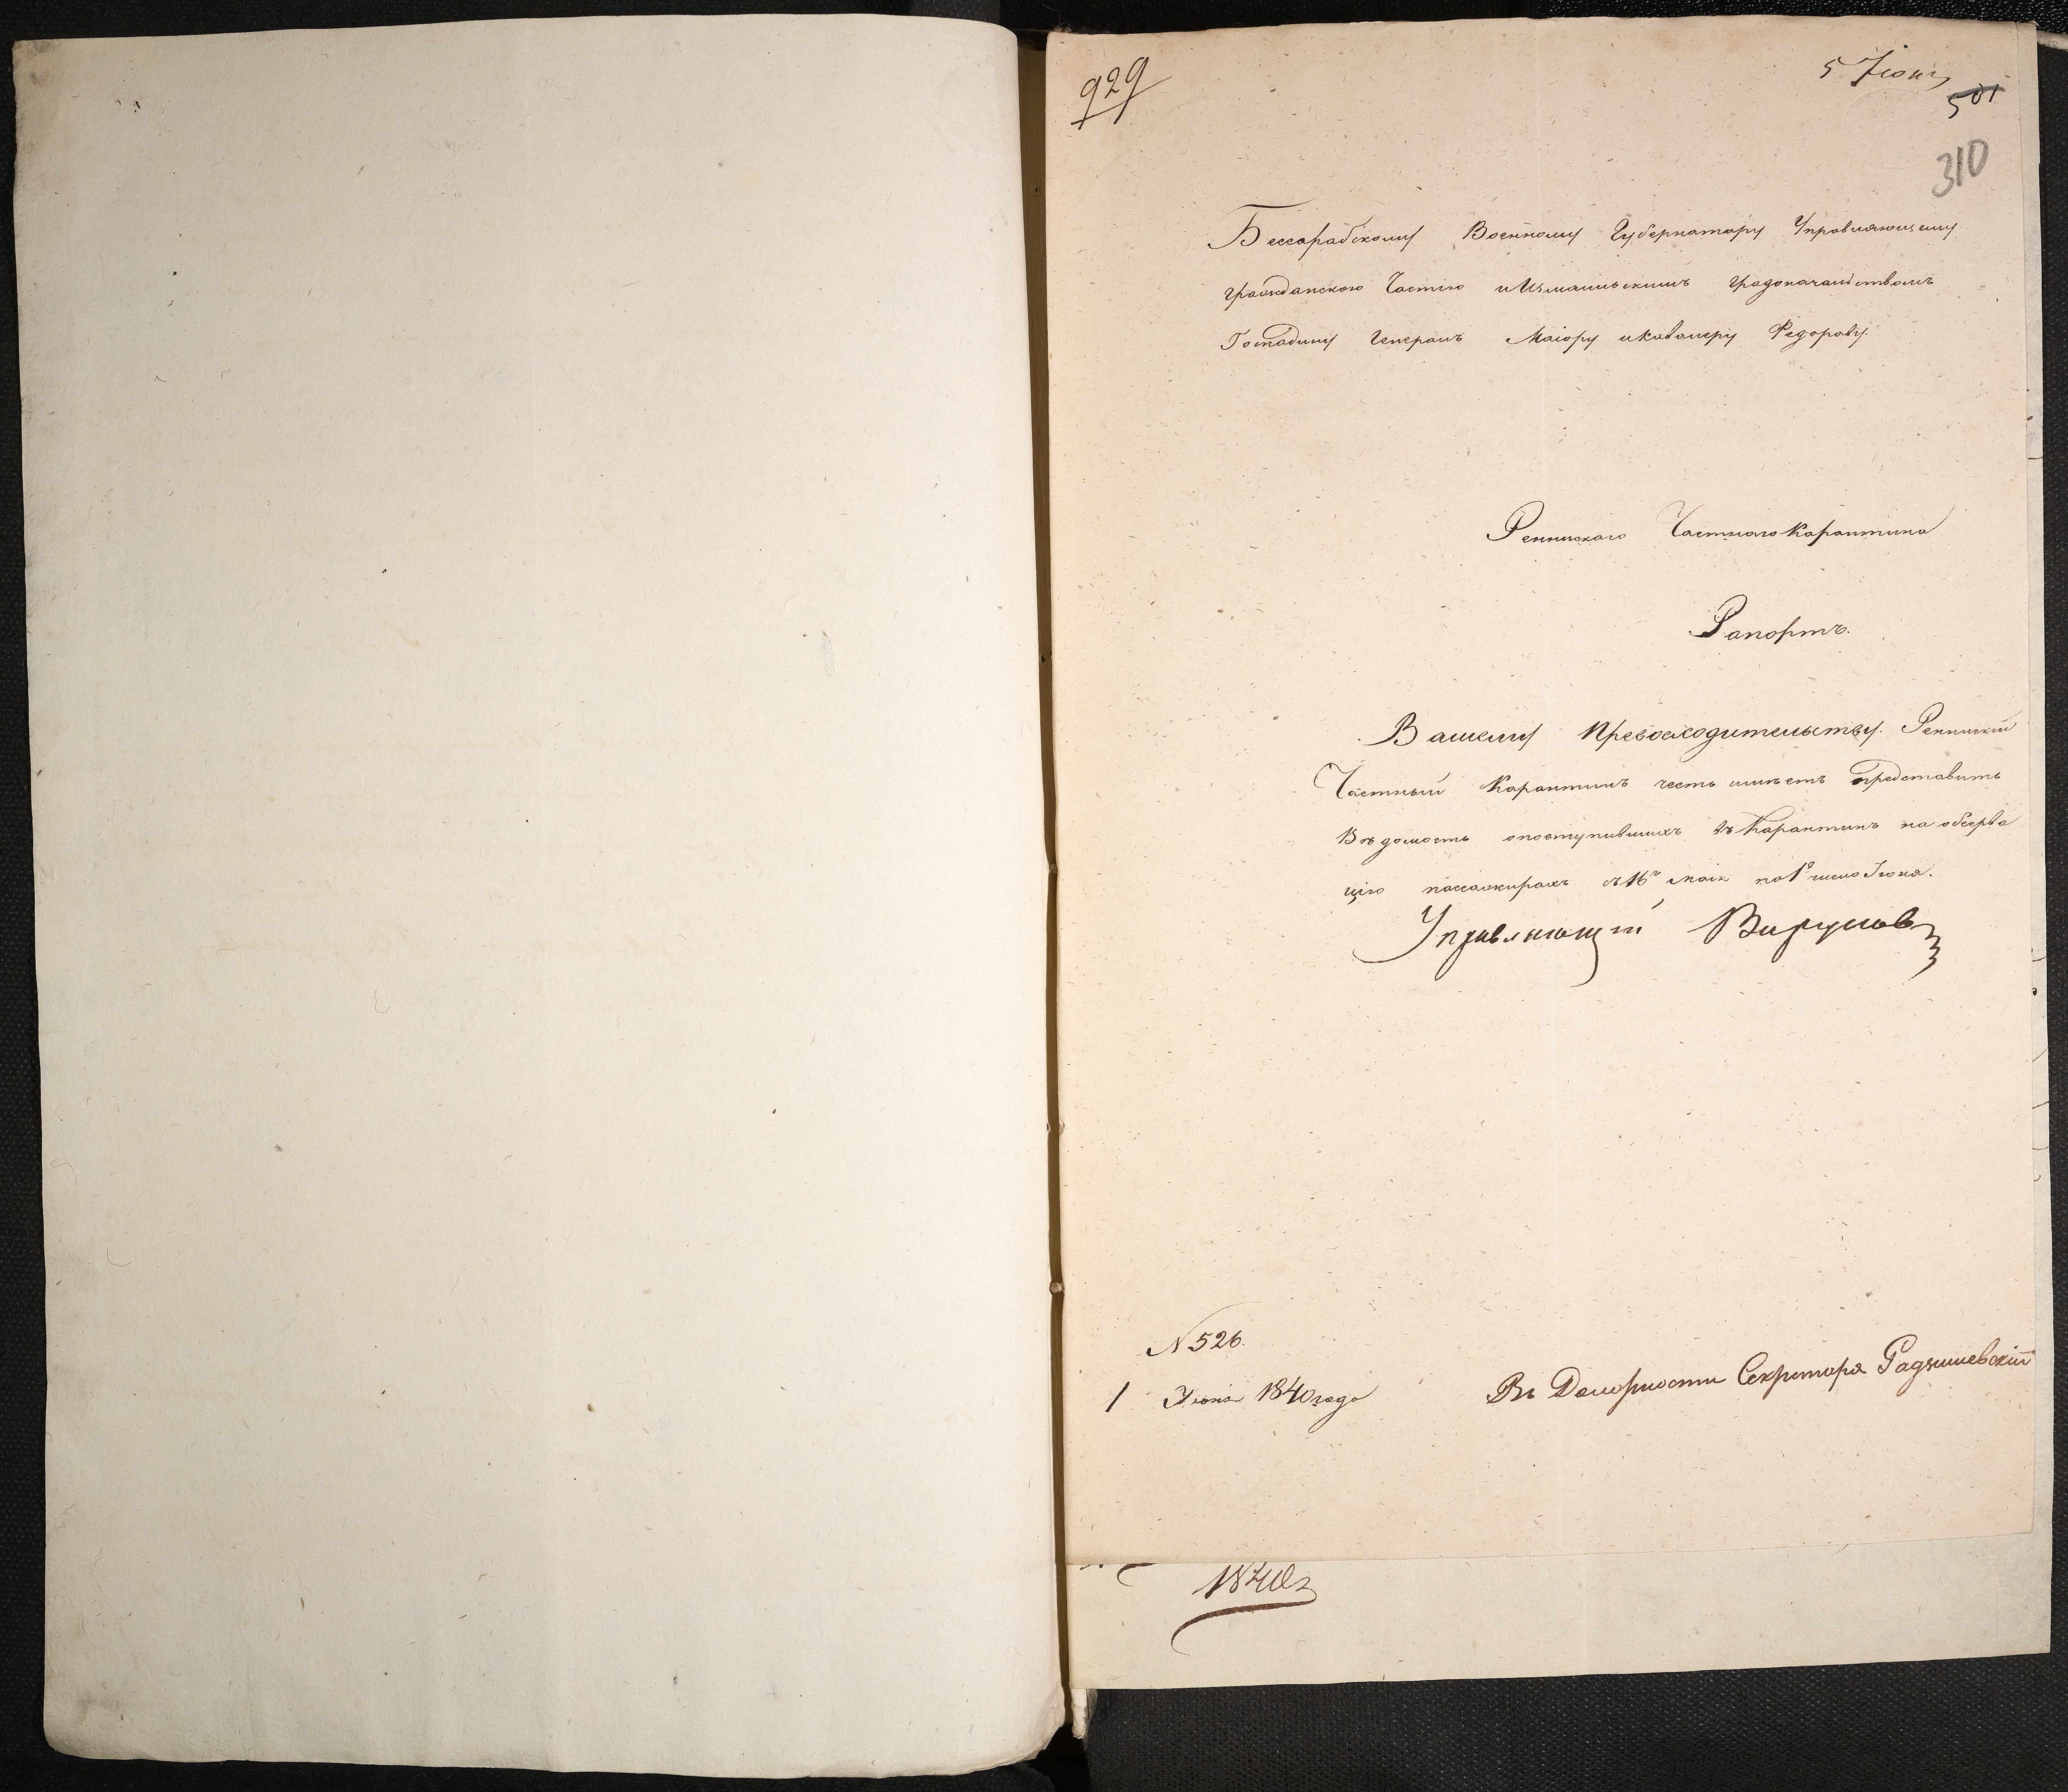 929
5 Июня
501
310
Бессарабскому Военному Губернатору Управляющему
гражданскою Частію и Измаильскимъ градоначальствомъ
Господину Генералъ Маіору и Кавалеру Федорову.
Ренискаго Частнаго Карантина
Рапортъ.
Вашему Превосходительству. Ренискій
Частный Карантинъ честь имѣетъ представить
Вѣдомость опоступившихъ въ Карантинъ на обсерва
цію пассажирахъ съ 16го мая по 1е число Іюня.
Управляющій
N 526.
1 Іюня 1840 года
Въ Должности Секретаря Радзишевскій
1840